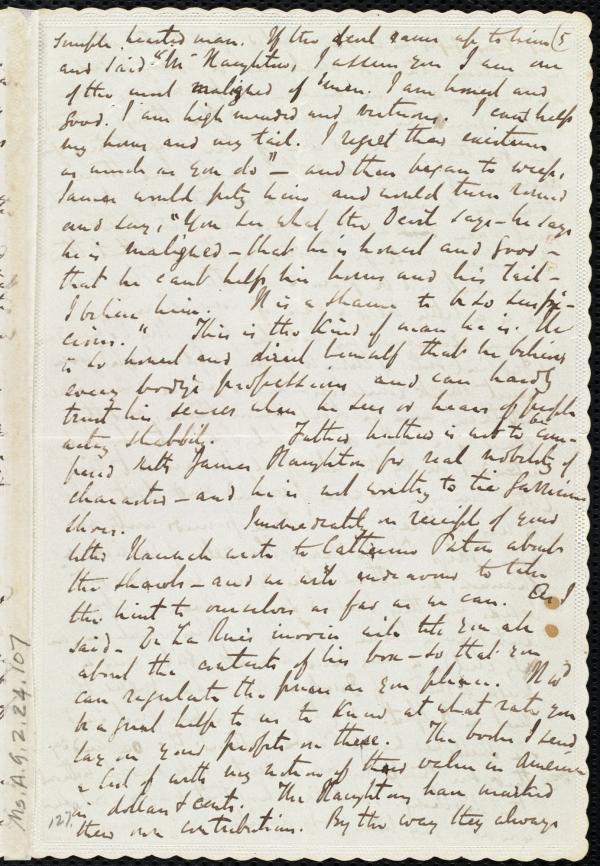 simple hearted man. If the devil came up to him (5
and said "Mr Haughton, I assure you I am one
of the most maligned of ^ men. I am honest and
good. I am high minded and virtuous. I can't help
my horns and my tail. I regret their existence
as much as you do" – and then began to weep,
James would pity him and would turn round
and say, "You see what the Devil says – he says
he is maligned – that he is honest and good –
that he can't help his horns and his tail –
I believe him. It is a shame to be so suspi-
cious." This is the kind of man he is. He
is so honest and direct himself that he believes
every body's professions and can hardly
trust his senses when he sees or hears of people
acting shabbily. Father Mathew is not to be com-
pared with James Haughton for real nobility of
character – and he is not worthy to tie Garrison's
shoes. Immediately on receipt of your
letter Hannah wrote to Catherine Paton about
the shawls – and we will endeavour to take
the hint to ourselves as far as we can. As I
said – De La Rue's invoice will tell you all
about the contents of his box – so that you
can regulate the prices as you please. It wd
be a great help to us to know at what rate you
lay on your profits on these. The books I send
a list of with my notion of their value in America
in dollars & cents. The Haughtons have marked
their own contributions. By the way they always
Ms. A. 9. 2. 24. 107
127